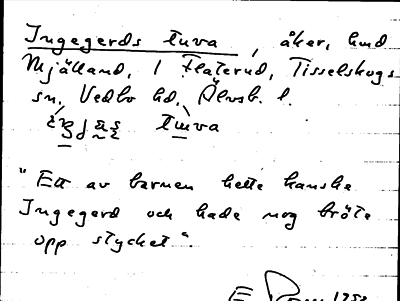 Ingegerds tuva, åker, hmd
Mjölland, 1 Flaterud, Tisselskogs
sn, Vedbo hd, Älvsb. l.
tuva
"Ett av barnen hette kanske
Ingegerd och hade nog bröte
opp stycket".
E